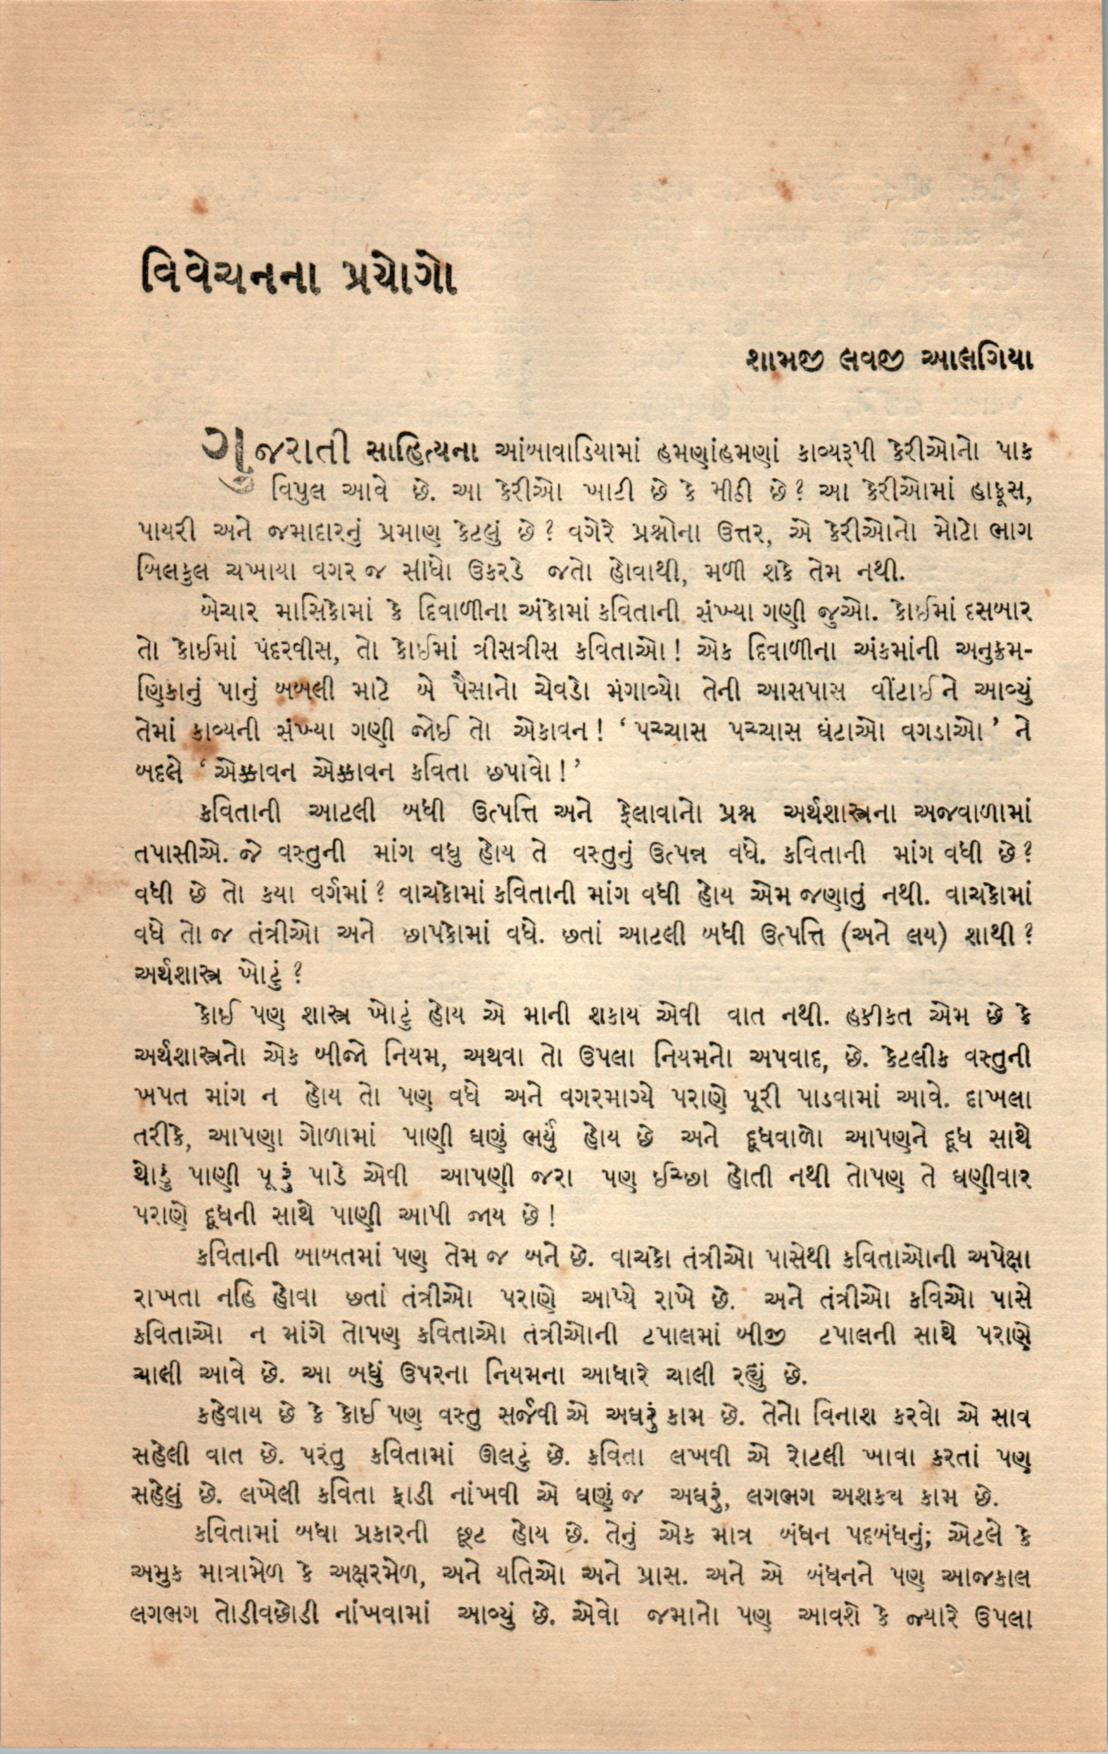 વિવેચનના પ્રયોગો
શામજી લવજી આલગિયા
ગુજરાતી સાહિત્યના આંબાવાડિયામાં હમણાંહમણાં કાવ્યરૂપી કેરીઓનો પાક
વિપુલ આવે છે. આ કેરીઓ ખાટી છે કે મીઠી છે? આ કેરીઓમાં હાફૂસ,
પાયરી અને જમાદારનું પ્રમાણ કેટલું છે? વગેરે પ્રશ્નોના ઉત્તર, એ કેરીઓનો મોટો ભાગ
બિલકુલ ચખાયા વગર જ સીધો ઉકરડે જતો હોવાથી, મળી શકે તેમ નથી.
બેચાર માસિકોમાં કે દિવાળીના અંકોમાં કવિતાની સંખ્યા ગણી જુઓ. કોઈમાં દસબાર
તો કોઈમાં પંદરવીસ, તો કોઈમાં ત્રીસત્રીસ કવિતાઓ! એક દિવાળીના અંકમાંની અનુક્રમ-
ણિકાનું પાનું બબલી માટે બે પૈસાનો ચેવડો મંગાવ્યો તેની આસપાસ વીંટાઈને આવ્યું
તેમાં કાવ્યની સંખ્યા ગણી જોઈ તો એકાવન! ‘પચ્ચાસ પચ્ચાસ ઘંટાઓ વગડાઓ’ ને
બદલે ‘એક્કાવન એક્કાવન કવિતા છપાવો!’
કવિતાની આટલી બધી ઉત્પત્તિ અને ફેલાવાનો પ્રશ્ન અર્થશાસ્ત્રના અજવાળામાં
તપાસીએ. જે વસ્તુની માંગ વધુ હોય તે વસ્તુનું ઉત્પન્ન વધે. કવિતાની માંગ વધી છે?
વધી છે તો કયા વર્ગમાં? વાચકોમાં કવિતાની માંગ વધી હોય એમ જણાતું નથી. વાચકોમાં
વધે તો જ તંત્રીઓ અને છાપકોમાં વધે. છતાં આટલી બધી ઉત્પત્તિ (અને લય) શાથી?
અર્થશાસ્ત્ર ખોટું?
કોઈ પણ શાસ્ત્ર ખોટું હોય એ માની શકાય એવી વાત નથી. હકીકત એમ છે કે
અર્થશાસ્ત્રનો એક બીજો નિયમ, અથવા તો ઉપલા નિયમનો અપવાદ, છે. કેટલીક વસ્તુની
ખપત માંગ ન હોય તો પણ વધે અને વગરમાગ્યે પરાણે પૂરી પાડવામાં આવે. દાખલા
તરીકે, આપણા ગોળામાં પાણી ઘણું ભર્યું હોય છે અને દૂધવાળો આપણને દૂધ સાથે
થોડું પાણી પૂરું પાડે એવી આપણી જરા પણ ઈચ્છા હોતી નથી તોપણ તે ઘણીવાર
પરાણે દૂધની સાથે પાણી આપી જાય છે!
કવિતાની બાબતમાં પણ તેમ જ બને છે. વાચકો તંત્રીઓ પાસેથી કવિતાઓની અપેક્ષા
રાખતા નહિ હોવા છતાં તંત્રીઓ પરાણે આપ્યે રાખે છે. અને તંત્રીઓ કવિઓ પાસે
કવિતાઓ ન માંગે તોપણ કવિતાઓ તંત્રીઓની ટપાલમાં બીજી ટપાલની સાથે પરાણે
ચાલી આવે છે. આ બધું ઉપરના નિયમના આધારે ચાલી રહ્યું છે.
કહેવાય છે કે કોઈ પણ વસ્તુ સર્જવી એ અઘરું કામ છે. તેનો વિનાશ કરવો એ સાવ
સહેલી વાત છે. પરંતુ કવિતામાં ઊલટું છે. કવિતા લખવી એ રોટલી ખાવા કરતાં પણ
સહેલું છે. લખેલી કવિતા ફાડી નાંખવી એ ઘણું જ અઘરું, લગભગ અશક્ય કામ છે.
કવિતામાં બધા પ્રકારની છૂટ હોય છે. તેનું એક માત્ર બંધન પદબંધનું; એટલે કે
અમુક માત્રામેળ કે અક્ષરમેળ, અને યતિઓ અને પ્રાસ. અને એ બંધનને પણ આજકાલ
લગભગ તોડીવછોડી નાંખવામાં આવ્યું છે. એવો જમાનો પણ આવશે કે જ્યારે ઉપલા